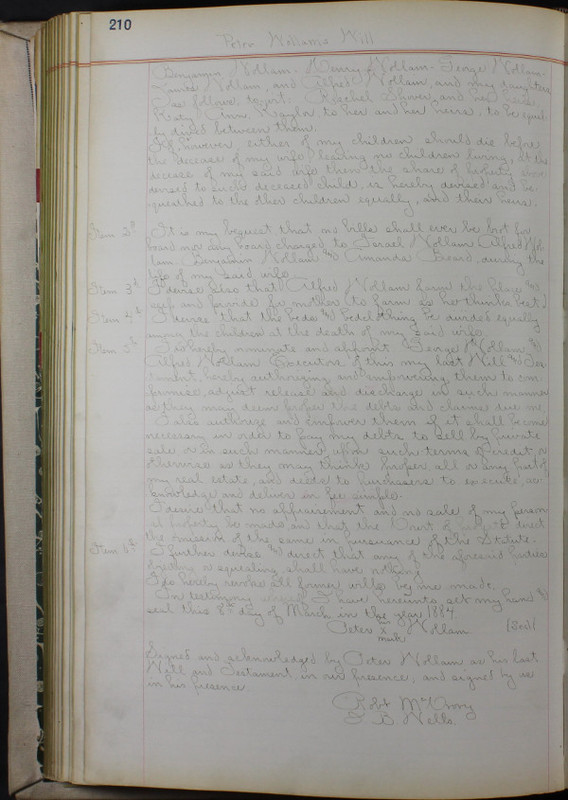 210
Peter Wollams Will
Benjamin Wollam - Henry Wollam - George Wollam
James Wollam, and Alfred Wollam, and my daughters
as follows to wit: Rachel Shover, and her heirs
Katy Ann Naylor, to her and her heirs, to be equal-
ly divided between them.
If however, either of my children should die before
the decease of my wife leaving no children living, at the
decease of my said wife then the share of
devised to such deceased child, is hereby devised and be-
queathed to the other children equally, and their heirs.
Item 2d It is my bequest that no bills shall ever be brot for
board nor any board charged to Israel Wollam Alfred Wol-
lam, Benjamin Wollam and Amanda Beard, during the
life of my said wife
Item 3d I devise also that Alfred Wollam farm the place and
and provide for mother to farm as he thinks best
Item 4th I devise that the beds and bedclothing be divided equally
among the children at the death of my said wife.
Item 5th I do hereby nominate and appoint George Wollam and
Alfred Wollam Executors of this my last Will and Tes-
tament, hereby authorizing and empowering them to com-
promise, adjust release and discharge in such manner
as they may deem proper the debts and claims due me.
I also authorize and empower them if it shall become
necessary in order to pay my debts, to sell by private
sale, or in such manner, upon such terms of credit, or
otherwise as they may think proper, all or any part of
my real estate, and deeds to purchasers to execute, ac-
knowledge and deliver in fee simple.
I desire that no appraisement and no sale of my person-
al property be made and that the Court of direct
the omission of the same in pursuance of the Statute.
Item 6th I further devise and direct that any of the aforesaid
or shall have nothing
I do hereby revoke all former wills by me made.
In testimony whereof I have hereunto set my hand and
seal this 8th day of March in the year 1884
Peter his x mark Wollam (Seal)
Signed and acknowledged by Peter Wollam as his last
Will and Testament, in our presence, and signed by us
in his presence.
Robt McCrory
S. B. Wells.